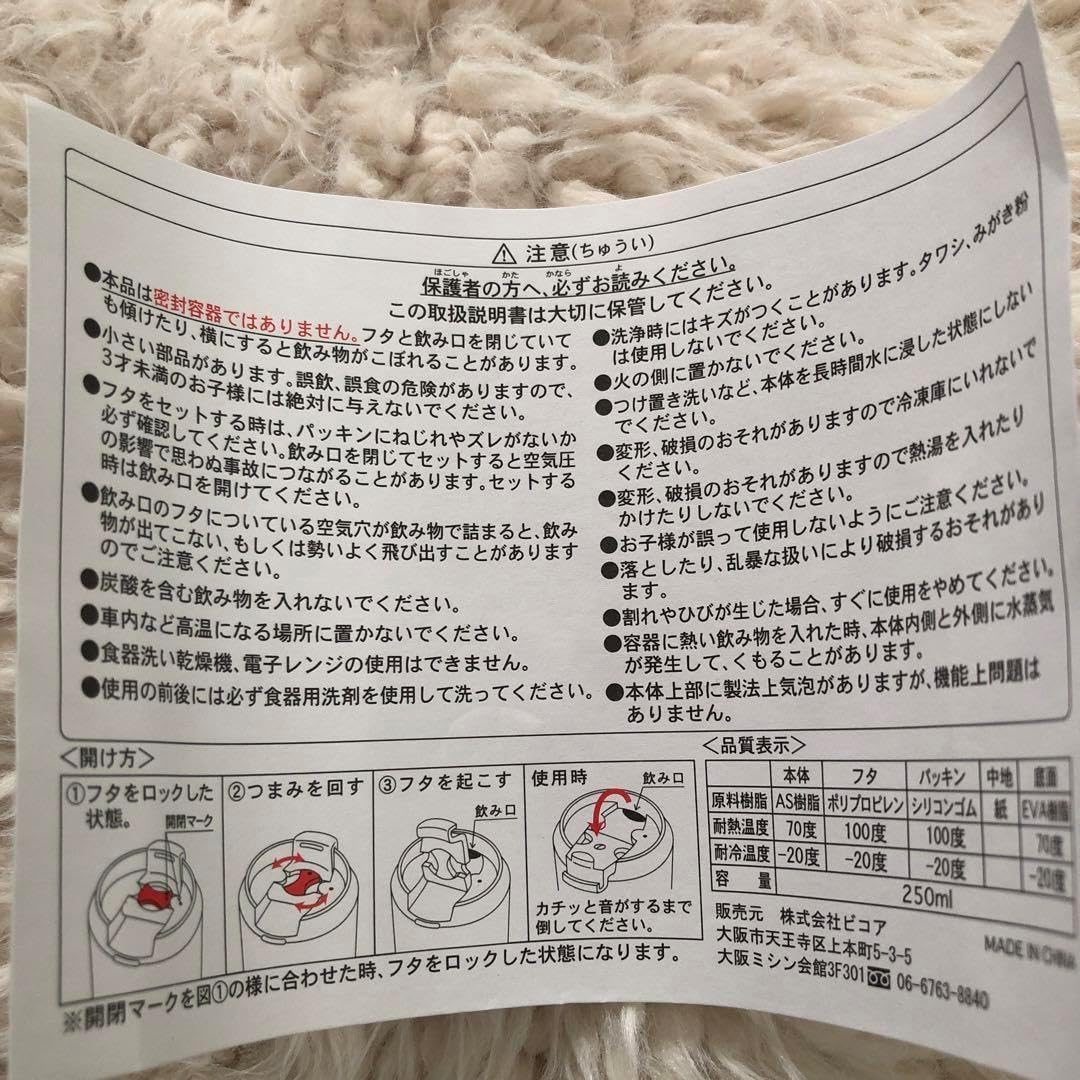 ⚠ 注意(ちゅうい)
保護者の方へ、必ずお読みください。
ほごしゃ かた かなら よ
この取扱説明書は大切に保管してください。
●本品は密封容器ではありません。フタと飲み口を閉じていて
も傾けたり、横にすると飲み物がこぼれることがあります。
●小さい部品があります。誤飲、誤食の危険がありますので、
3才未満のお子様には絶対に与えないでください。
●フタをセットする時は、パッキンにねじれやズレがないか
必ず確認してください。飲み口を閉じてセットすると空気圧
の影響で思わぬ事故につながることがあります。セットする
時は飲み口を開けてください。
●飲み口のフタについている空気穴が飲み物で詰まると、飲み
物が出てこない、もしくは勢いよく飛び出すことがあります
のでご注意ください。
●炭酸を含む飲み物を入れないでください。
●車内など高温になる場所に置かないでください。
●食器洗い乾燥機、電子レンジの使用はできません。
●使用の前後には必ず食器用洗剤を使用して洗ってください。
●洗浄時にはキズがつくことがあります。タワシ、みがき粉
は使用しないでください。
●火の側に置かないでください。
●つけ置き洗いなど、本体を長時間水に浸した状態にしない
でください。
●変形、破損のおそれがありますので冷凍庫にいれないで
ください。
●変形、破損のおそれがありますので熱湯を入れたり
かけたりしないでください。
●お子様が誤って使用しないようにご注意ください。
●落としたり、乱暴な扱いにより破損するおそれがあり
ます。
●割れやひびが生じた場合、すぐに使用をやめてください。
●容器に熱い飲み物を入れた時、本体内側と外側に水蒸気
が発生して、くもることがあります。
●本体上部に製法上気泡がありますが、機能上問題は
ありません。
<開け方>
①フタをロックした
状態。
開閉マーク
②つまみを回す
③フタを起こす
飲み口
使用時
飲み口
カチッと音がするまで
倒してください。
※開閉マークを図①の様に合わせた時、フタをロックした状態になります。
<品質表示>
本体 フタ パッキン 中地 底面
原料樹脂 AS樹脂 ポリプロピレン シリコンゴム 紙 EVA樹脂
耐熱温度 70度 100度 100度 70度
耐冷温度 -20度 -20度 -20度 -20度
容量 250ml
販売元 株式会社ビコア
大阪市天王寺区上本町5-3-5
大阪ミシン会館3F301 06-6763-8840
MADE IN CHINA